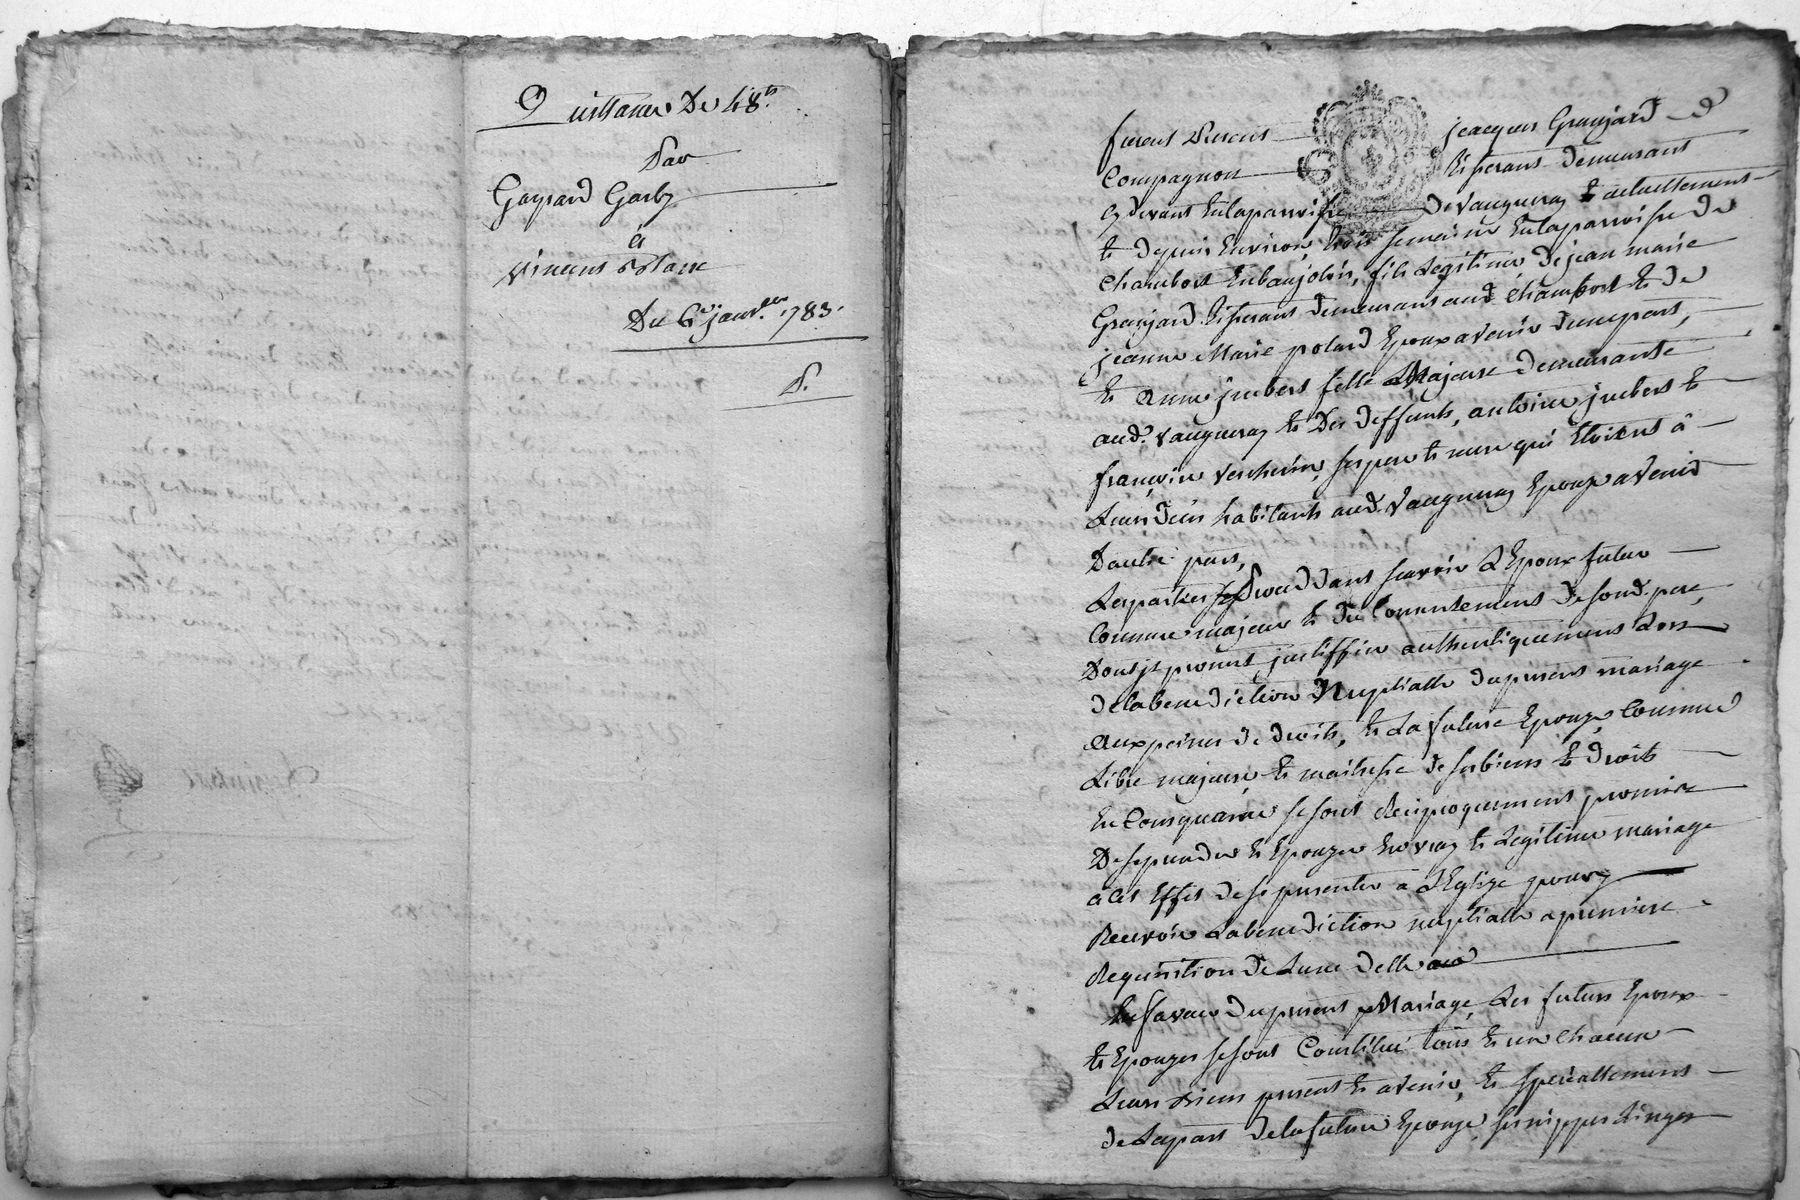 Quittance De 48tt
Par
Gaspard Garby
à
Vincent Blanc
Du 6e janv.er 1783.
P.
furent Presens jeacques Granjard
Compagnon Tisserant demeurant
cy devant En la parroisse De Vaugneray Et actuellement
Et depuis Environ trois semaines En la parroisse de
Chambost En baujolois, fils Legitime de jean marie
Granjard Tisserant demeurant aud. Chambost Et de
jeanne Marie polard Epoux avenir dune part,
Et Anne jimbert fille Majeure demeurante
aud. Vaugneray Et Des deffunts, antoine jimbert Et
françoise Vercherin, ses pere Et mere qui Etoient à
Leurs deces habitants aud. Vaugneray Epouse avenir
Dautre part,
Lesparties procedant scavoir L'Epoux futur
Comme majeur Et du Consentement de sond. pere,
Dont il promet justiffier authentiquement Lors
de la benediction Nuptialle du present mariage
aux peines de droits, Et La future Epouze, Comme
Libre majeure, Et maitresse de ses biens Et droits
En Consequence se sont Reciproquement promis
De se prendre Et Epouzer En vray Et Legitime mariage
a Cet Effet de se presenter a L'Eglize pour y
Recevoir La benediction nuptialle a premiere
Requisition de Lune delle
En faveur du present Mariage, Les futurs Epoux
Et Epouzes se sont Constitué tous Et un Chacun
Leurs Biens present Et avenir, Et specialement
de La part de la future Epouze, ses nippes Linges